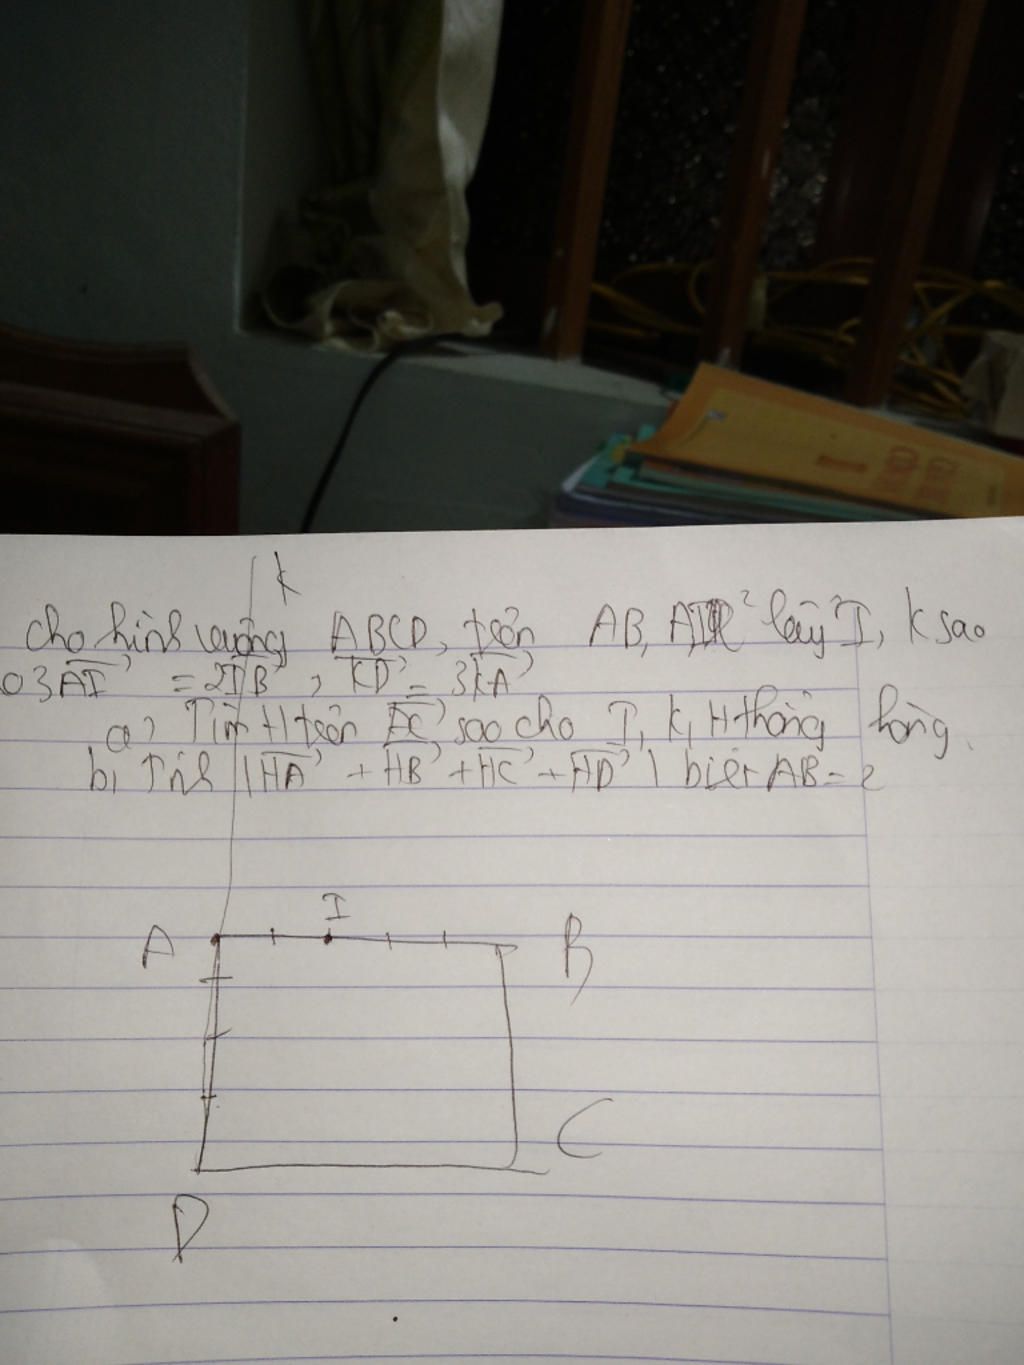 K
cho hình vuông ABCD, trên AB, AD lấy I, K sao
o 3AI = 2IB, KD = 3KA
a, Tìm H trên sao cho I, K, H thẳng hàng.
b, Tính |HA + HB + HC + HD| biết AB = 
A I B
C
D